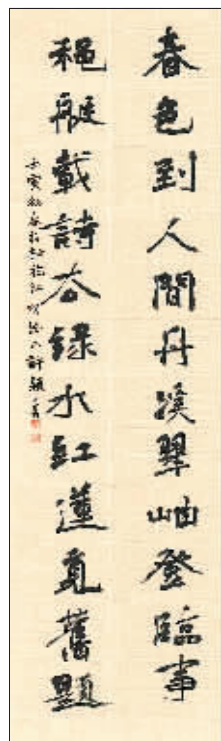 春色到人間丹溪翠岫登臨事
穏艇載詩去緑水紅蓮覓舊題